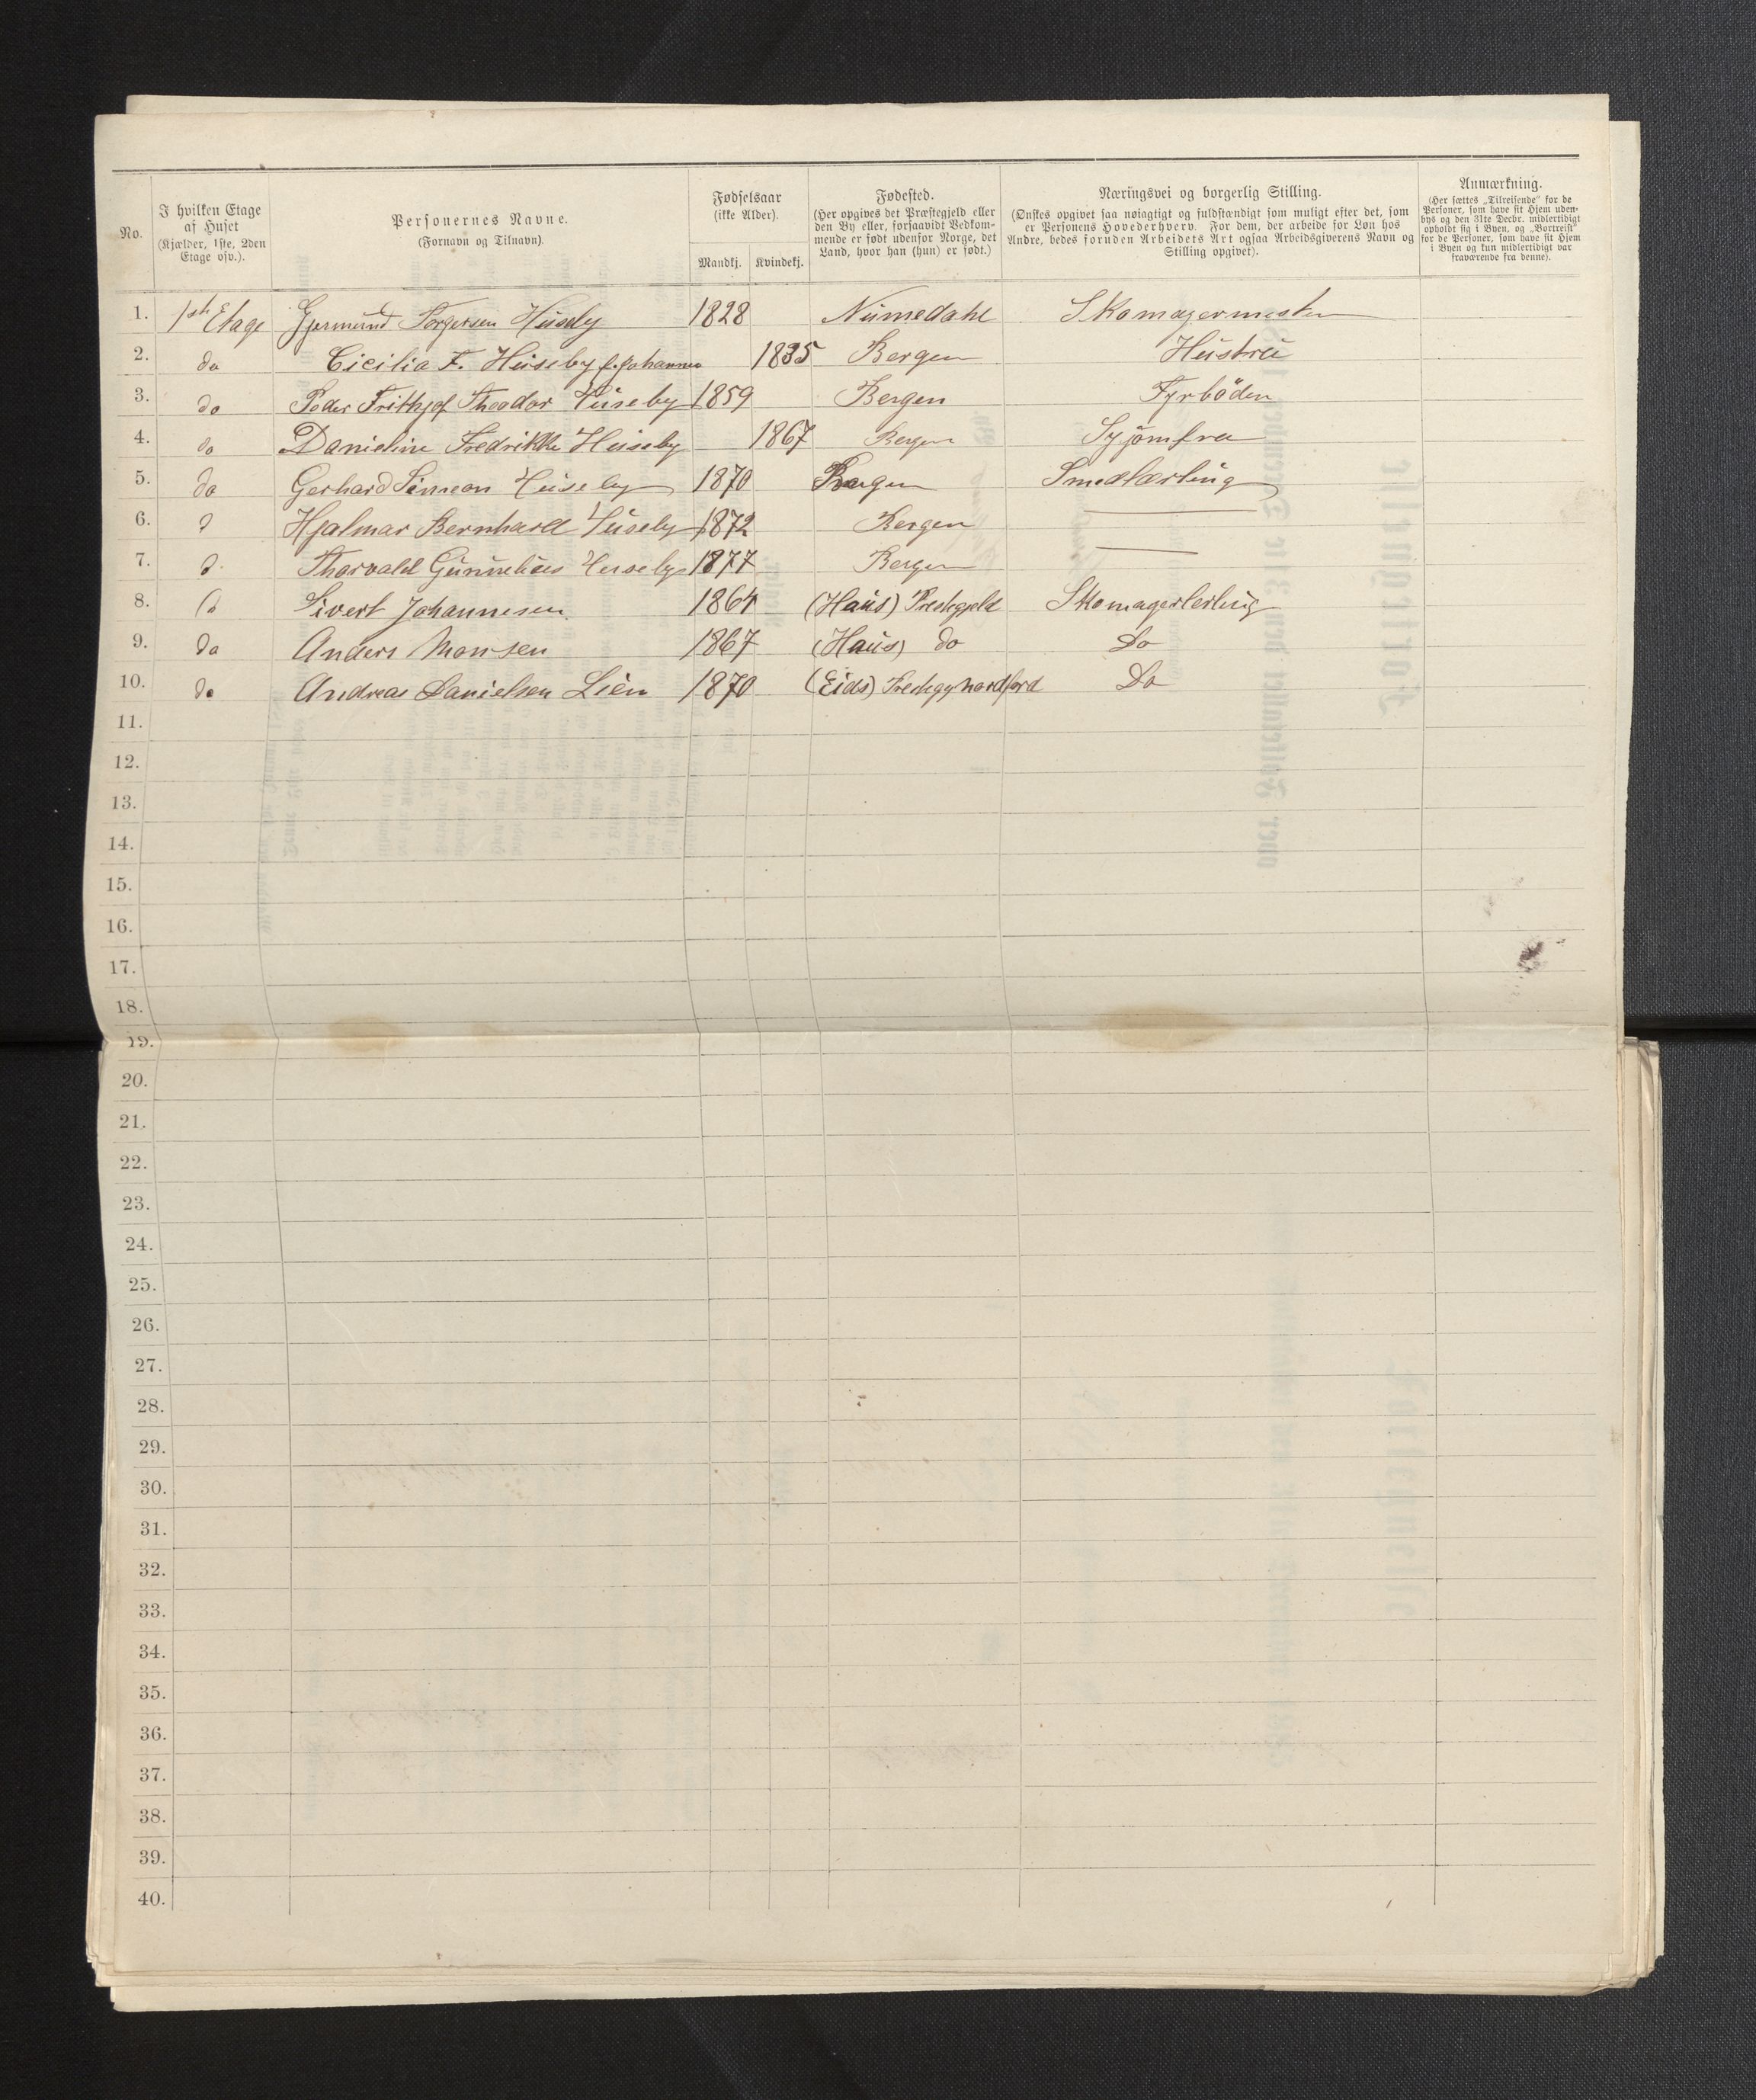 No.
I hvilken Etage af Huset (Kjælder, 1ste, 2den Etage osv.).
Personernes Navne. (Fornavn og Tilnavn).
Fødselsaar (ikke Alder).
Mandkj. Kvindekj.
Fødested. (Her opgives det Præstegjeld eller den By eller, forsaavidt Bedkommende er født udenfor Norge, det Land, hvor han (hun) er født.)
Næringsvei og borgerlig Stilling. (Ønskes opgivet saa nøiagtigt og fuldstændigt som muligt efter det, som er Personens Hovederhverv. For dem, der arbeide for Løn hos Andre, bedes foruden Arbeidets Art ogsaa Arbeidsgiverens Navn og Stilling opgivet).
Anmærkning. (Her sættes „Tilreisende" for de Personer, som have sit Hjem udenbys og den 31te Decbr. midlertidigt opholdt sig i Byen, og „Bortreist" for de Personer, som have sit Hjem i Byen og kun midlertidigt var fraværende fra denne).
1. 1ste Etage Gjermund Torgersen Huseby 1828 Numedahl Skomagermester
2. do Cicilia F. Huseby f. Johannes 1835 Bergen Hustru
3. do Peder Frithjof Theodor Huseby 1859 Bergen Fyrböder
4. do Danieline Fredrikke Huseby 1867 Bergen Syjomfru
5. do Gerhard Simeon Huseby 1870 Bergen Smedlærling
6. d Hjalmar Bernhard Huseby 1872 Bergen —
7. d Thorvald Gunnelius Huseby 1877 Bergen —
8. do Sivert Johannesen 1864 (Haus) Prestegjeld Skomagerlerling
9. do Anders Monsen 1867 (Haus) do Do
10. do Andreas Danielsen Lien 1870 (Eids) Prestegj nordfjord Do
11.
12.
13.
14.
15.
16.
17.
18.
19.
20.
21.
22.
23.
24.
25.
26.
27.
28.
29.
30.
31.
32.
33.
34.
35.
36.
37.
38.
39.
40.